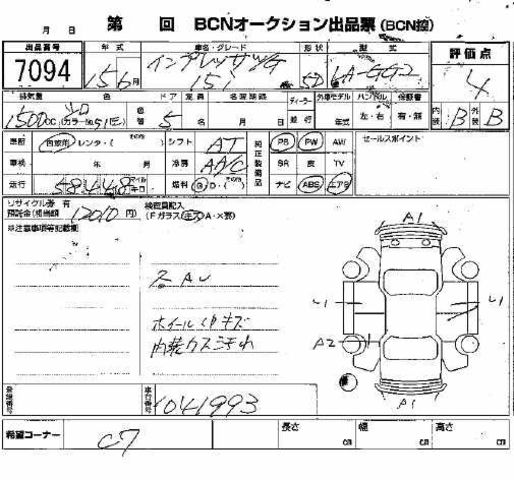 月 日 第 回 BCNオークション出品票(BCN控)
出品番号 年式 車名・グレード 形状 型式 評価点
7094 15 6月 インプレッサ 5D LA-GG2 4
15i
排気量 色 ドア 定員 名変期限 ディーラー 外車モデル ハンドル 保証書 内装 B 外装 B
1500cc (カラーNo. 51E) 5 名 月 日 並行 年式 左・右 有・無
自家用 レンタ・(その他) シフト AT 純正装備品 PS PW AW セールスポイント
車検 年 月 冷房 AAC SR 皮 TV
走行 58448 マイル キロ 燃料 G D・(その他) ナビ ABS エアB
リサイクル券 有 検査員記入
預託金(相当額 12010 円) (Fガラス キズ A・X要)
※注意事項等記載欄
A1
スAU
U1 U1
ホイールCPキズ
内装クスミ汚れ A2
A1
登録番号 車台番号 1041993
希望コーナー C7 長さ cm 幅 cm 高さ cm